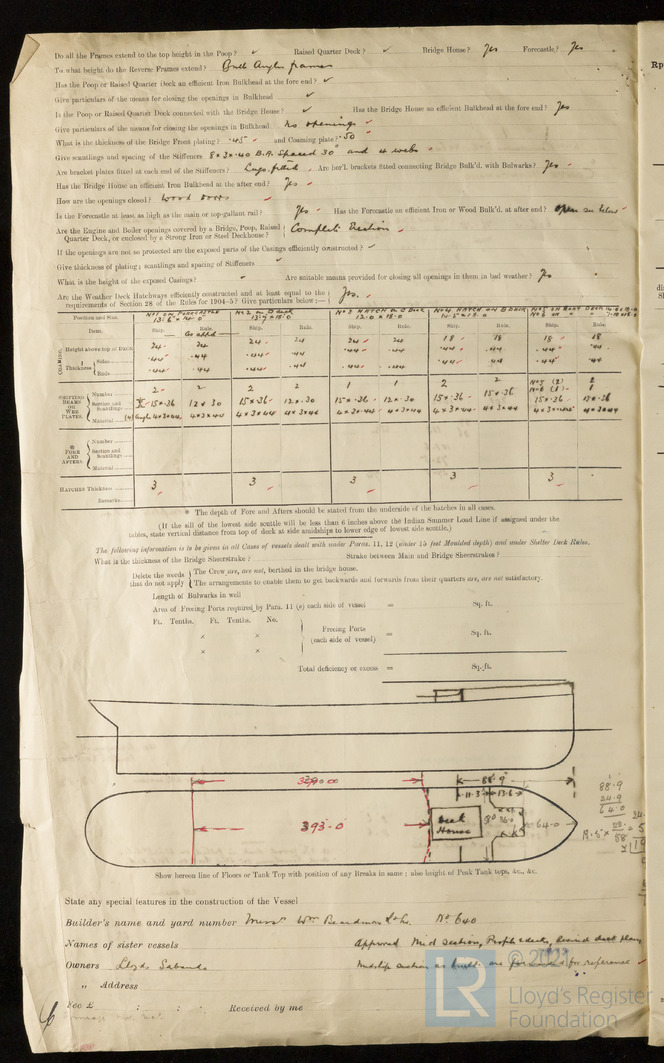 Do all the Frames extend to the top height in the Poop? ✓ Raised Quarter Deck? ✓ Bridge House? Yes Forecastle? Yes
To what height do the Reverse Frames extend? Bulb Angle frames
Has the Poop or Raised Quarter Deck an efficient Iron Bulkhead at the fore end? ✓
Give particulars of the means for closing the openings in Bulkhead ✓
Is the Poop or Raised Quarter Deck connected with the Bridge House? ✓ Has the Bridge House an efficient Bulkhead at the fore end? Yes
Give particulars of the means for closing the openings in Bulkhead No openings
What is the thickness of the Bridge Front plating? .45 and Coaming plate? .50
Give scantlings and spacing of the Stiffeners 8 x 3 x .40 B.A. Spaced 30" and 4 webs
Are bracket plates fitted at each end of the Stiffeners? Lugs fitted Are hor'l. brackets fitted connecting Bridge Bulk'd. with Bulwarks? Yes
Has the Bridge House an efficient Iron Bulkhead at the after end? Yes
How are the openings closed? Wood doors
Is the Forecastle at least as high as the main or top-gallant rail? Yes Has the Forecastle an efficient Iron or Wood Bulk'd. at after end? open as below
Are the Engine and Boiler openings covered by a Bridge, Poop, Raised Quarter Deck, or enclosed by a Strong Iron or Steel Deckhouse? Complete Erection
If the openings are not so protected are the exposed parts of the Casings efficiently constructed? ✓
Give thickness of plating; scantlings and spacing of Stiffeners ✓
What is the height of the exposed Casings? ✓ Are suitable means provided for closing all openings in them in bad weather? Yes
Are the Weather Deck Hatchways efficiently constructed and at least equal to the requirements of Section 28 of the Rules for 1904-5? Give particulars below:— Yes.
Position and Size. No 1 on Forecastle No 2 on B deck No 3 Hatch on B Deck No 4 Hatch on B Deck No 5 on Boat Deck
Item. Ship. Rule. Ship. Rule. Ship. Rule. Ship. Rule. Ship. Rule.
COAMING
Height above top of Deck 24 24 24 24 24 24 18 18 18 18
Thickness Sides .44 .44 .44 .44 .44 .44 .44 .44 .44 .44
Ends .44 .44 .44 .44 .44 .44 .44 .44 .44 .44
SHIFTING BEAMS OR WEB PLATES.
Number 2 2 2 2 1 1 2 2 No 5 (2) 2
Section and Scantlings 15 x .36 12 x 30 15 x .36 12 x .30 15 x .36 12 x .30 15 x .36 15 x .36 15 x .36
Material Angle 4 x 3 x 44 4 x 3 x 44 4 x 3 x 44 4 x 3 x 44 4 x 3 x 44 4 x 3 x 44 4 x 3 x 44 4 x 3 x 44
* FORE AND AFTERS.
Number
Section and Scantlings
Material
HATCHES Thickness 3 3 3 3 3
Remarks
* The depth of Fore and Afters should be stated from the underside of the hatches in all cases.
(If the sill of the lowest side scuttle will be less than 6 inches above the Indian Summer Load Line if assigned under the
tables, state vertical distance from top of deck at side amidships to lower edge of lowest side scuttle.)
The following information is to be given in all Cases of vessels dealt with under Paras. 11, 12 (under 15 feet Moulded depth) and under Shelter Deck Rules.
What is the thickness of the Bridge Sheerstrake? Strake between Main and Bridge Sheerstrakes?
Delete the words that do not apply { The Crew are, are not, berthed in the bridge house.
The arrangements to enable them to get backwards and forwards from their quarters are, are not satisfactory.
Length of Bulwarks in well
Area of Freeing Ports required by Para. 11 (e) each side of vessel = Sq. ft.
Ft. Tenths. Ft. Tenths. No.
x x
x x
Freeing Ports (each side of vessel) = Sq. ft.
Total deficiency or excess = Sq. ft.
88.9
11.3 13.6
393.0
Deck House
64.0
88.9
24.9
64.0
Show hereon line of Floors or Tank Top with position of any Breaks in same; also height of Peak Tank tops, &c., &c.
State any special features in the construction of the Vessel
Builder's name and yard number Messrs Wm Beardmore & Co. No 640
Names of sister vessels Approved Mid Section, Profile & decks,
Owners Lloyd Sabaudo Midship section as built are forwarded for reference
" Address
Fee £ : : Received by me
© 2021
LR
Lloyd's Register
Foundation